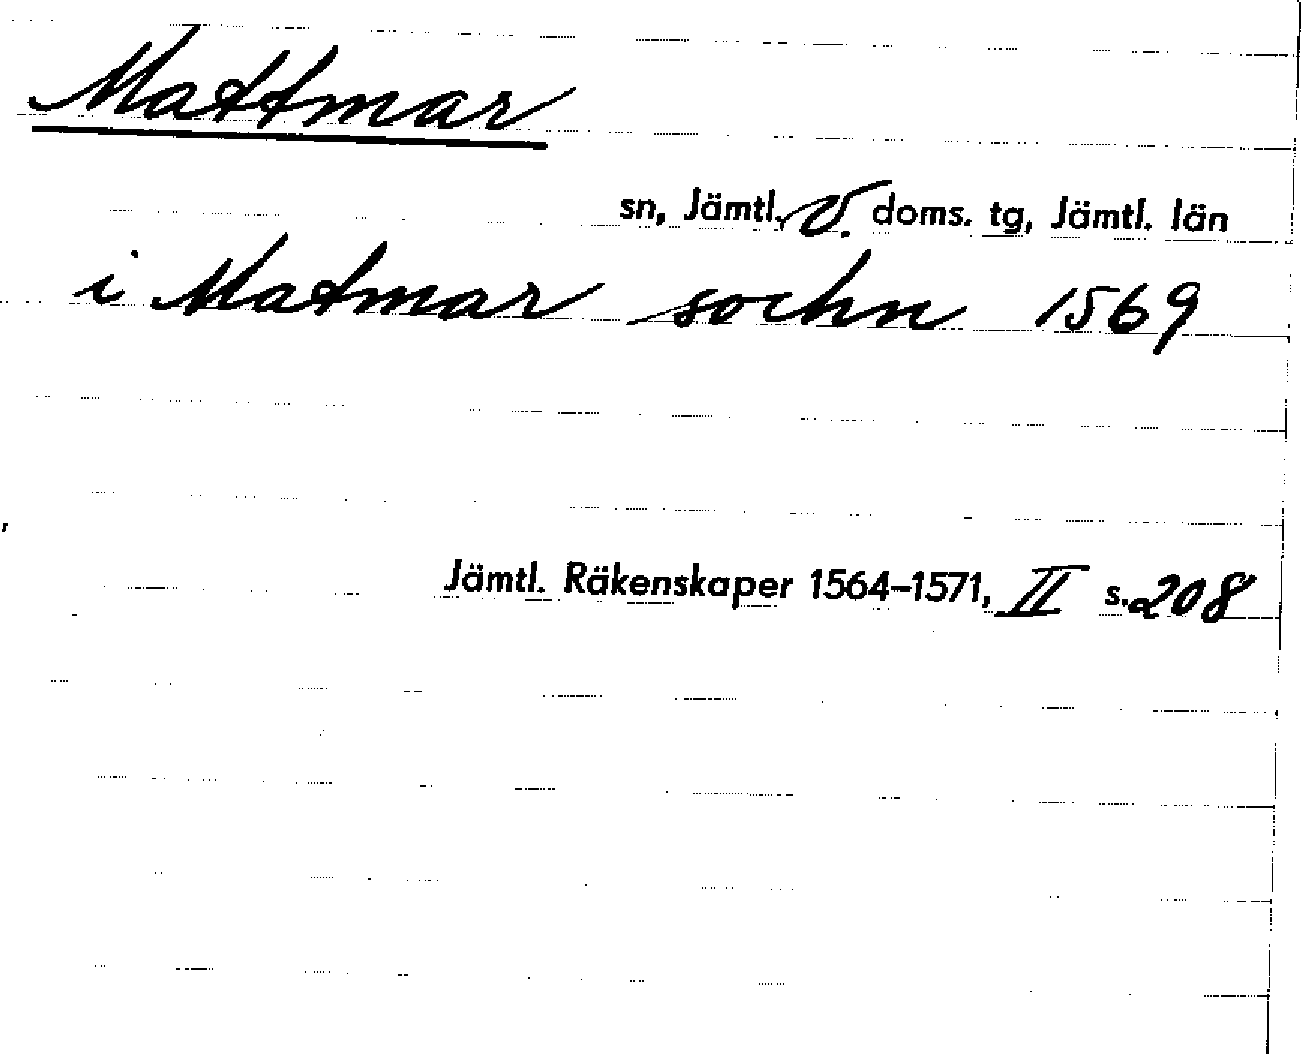 Mattmar
sn, Jämtl. V. doms. tg, Jämtl. län
i Matmar sochn 1569
Jämtl. Räkenskaper 1564-1571, II s. 208